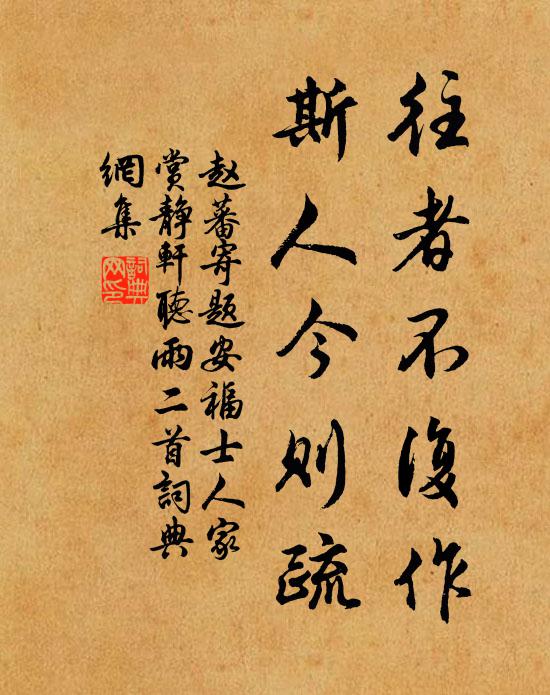 往者不復作
斯人今則疏
赵蕃寄题安福士人家
赏静軒聽雨二首詞典
網集
詞典網印